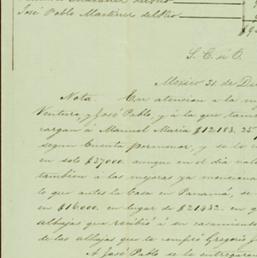 José Pablo Martínez del Río
S. E. ú O.
Mexico 31 de Di
Nota. En atencion a la m
Ventura, y José Pablo, y á la que tam
cargan á Manuel María $12103. 25
segun Cuenta pormenor, y se lo
en solo $37000 aunque en el dia val
tambien á las mejoras ya menciona
lo que antes la Casa en Panamá, se
en $16000. en lugar de $21432. en q
alhajas que recibió á su casamiento
de las alhajas que le compró Gregorio J
A José Pablo se le entregaron